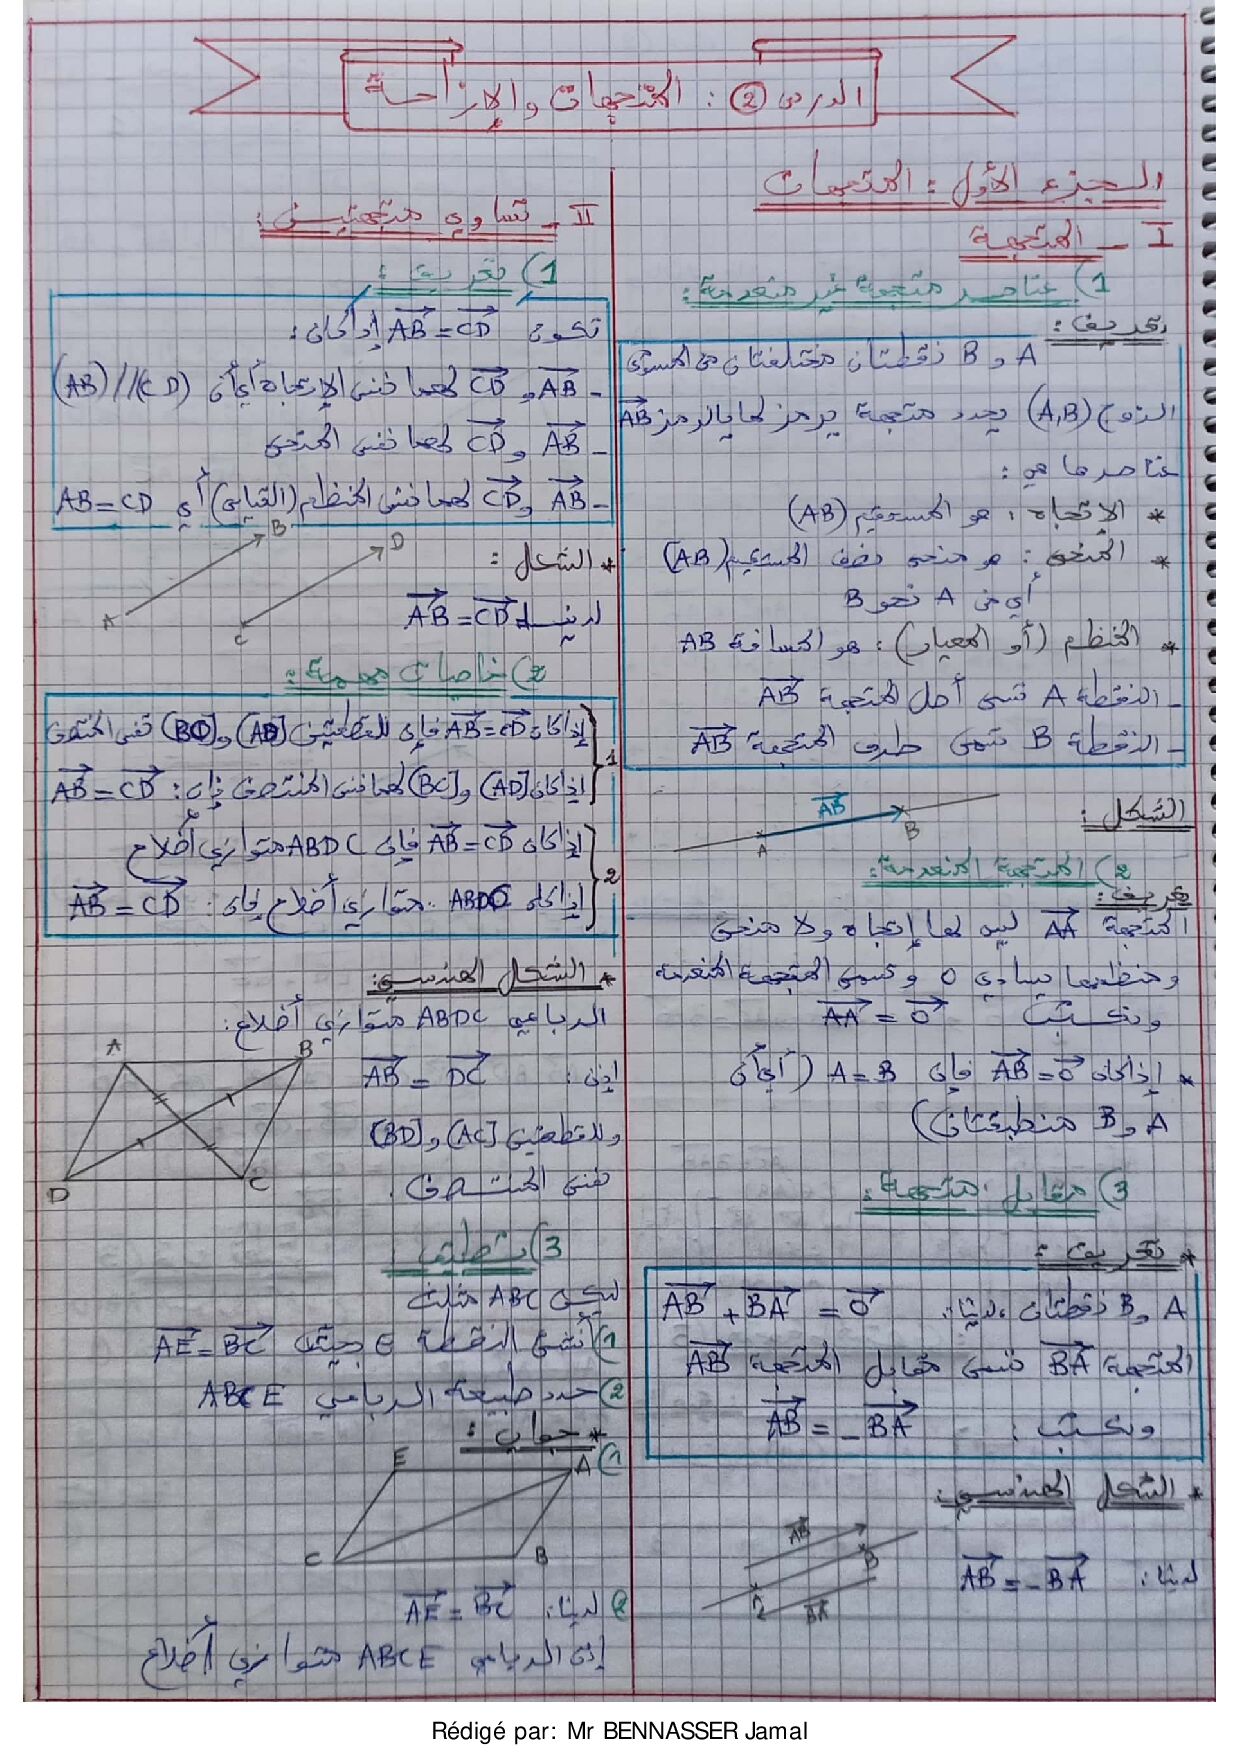 الدرس 2 : المتجهات والإزاحة
الجزء الأول : المتجهات
I _ المتجهة
1) عناصر متجهة غير منعدمة :
تعريف :
A و B نقطتان مختلفتان من المستوى
الزوج (A,B) يحدد متجهة يرمز لها بالرمز AB
عناصرها هي :
* الإتجاه : هو المستقيم (AB)
* المنحى : هو منحى نصف المستقيم [AB)
أي من A نحو B
* المنظم (أو المعيار) : هو المسافة AB
_ النقطة A تسمى أصل المتجهة AB
_ النقطة B تسمى طرف المتجهة AB
الشكل :
AB
A B
2) المتجهة المنعدمة :
تعريف :
المتجهة AA ليس لها إتجاه ولا منحى
ومنظمها يساوي 0 وتسمى المتجهة المنعدمة
ونكتب AA = 0
* إذا كان AB = 0 فإن A = B (أي أن
A و B منطبقتان)
3) مقابل متجهة :
* تعريف :
A و B نقطتان، لدينا : AB + BA = 0
المتجهة BA تسمى مقابل المتجهة AB
ونكتب : AB = - BA
* الشكل الهندسي :
AB
B
A
BA
لدينا : AB = - BA
II _ تساوي متجهتين :
1) تعريف :
تكون AB = CD إذا كان :
- AB و CD لهما نفس الإتجاه أي أن (AB)//(CD)
- AB و CD لهما نفس المنحى
- AB و CD لهما نفس المنظم (القياس) أي AB = CD
* الشكل :
B
D
A
C
لدينا AB = CD
2) خاصيات مهمة :
1 إذا كان AB = CD فإن للقطعتين [AD] و [BC] نفس المنتصف
إذا كان [AD] و [BC] لهما نفس المنتصف فإن : AB = CD
2 إذا كان AB = CD فإن ABDC متوازي أضلاع
إذا كان ABDC متوازي أضلاع فإن : AB = CD
* الشكل الهندسي :
الرباعي ABDC متوازي أضلاع :
A B
D C
إذن : AB = DC
وللقطعتين [AC] و [BD]
نفس المنتصف .
3) تطبيق
ليكن ABC مثلث
1) أنشئ النقطة E بحيث AE = BC
2) حدد طبيعة الرباعي ABCE
* جواب :
1)
E A
C B
2) لدينا : AE = BC
إذن الرباعي ABCE متوازي أضلاع
Rédigé par: Mr BENNASSER Jamal